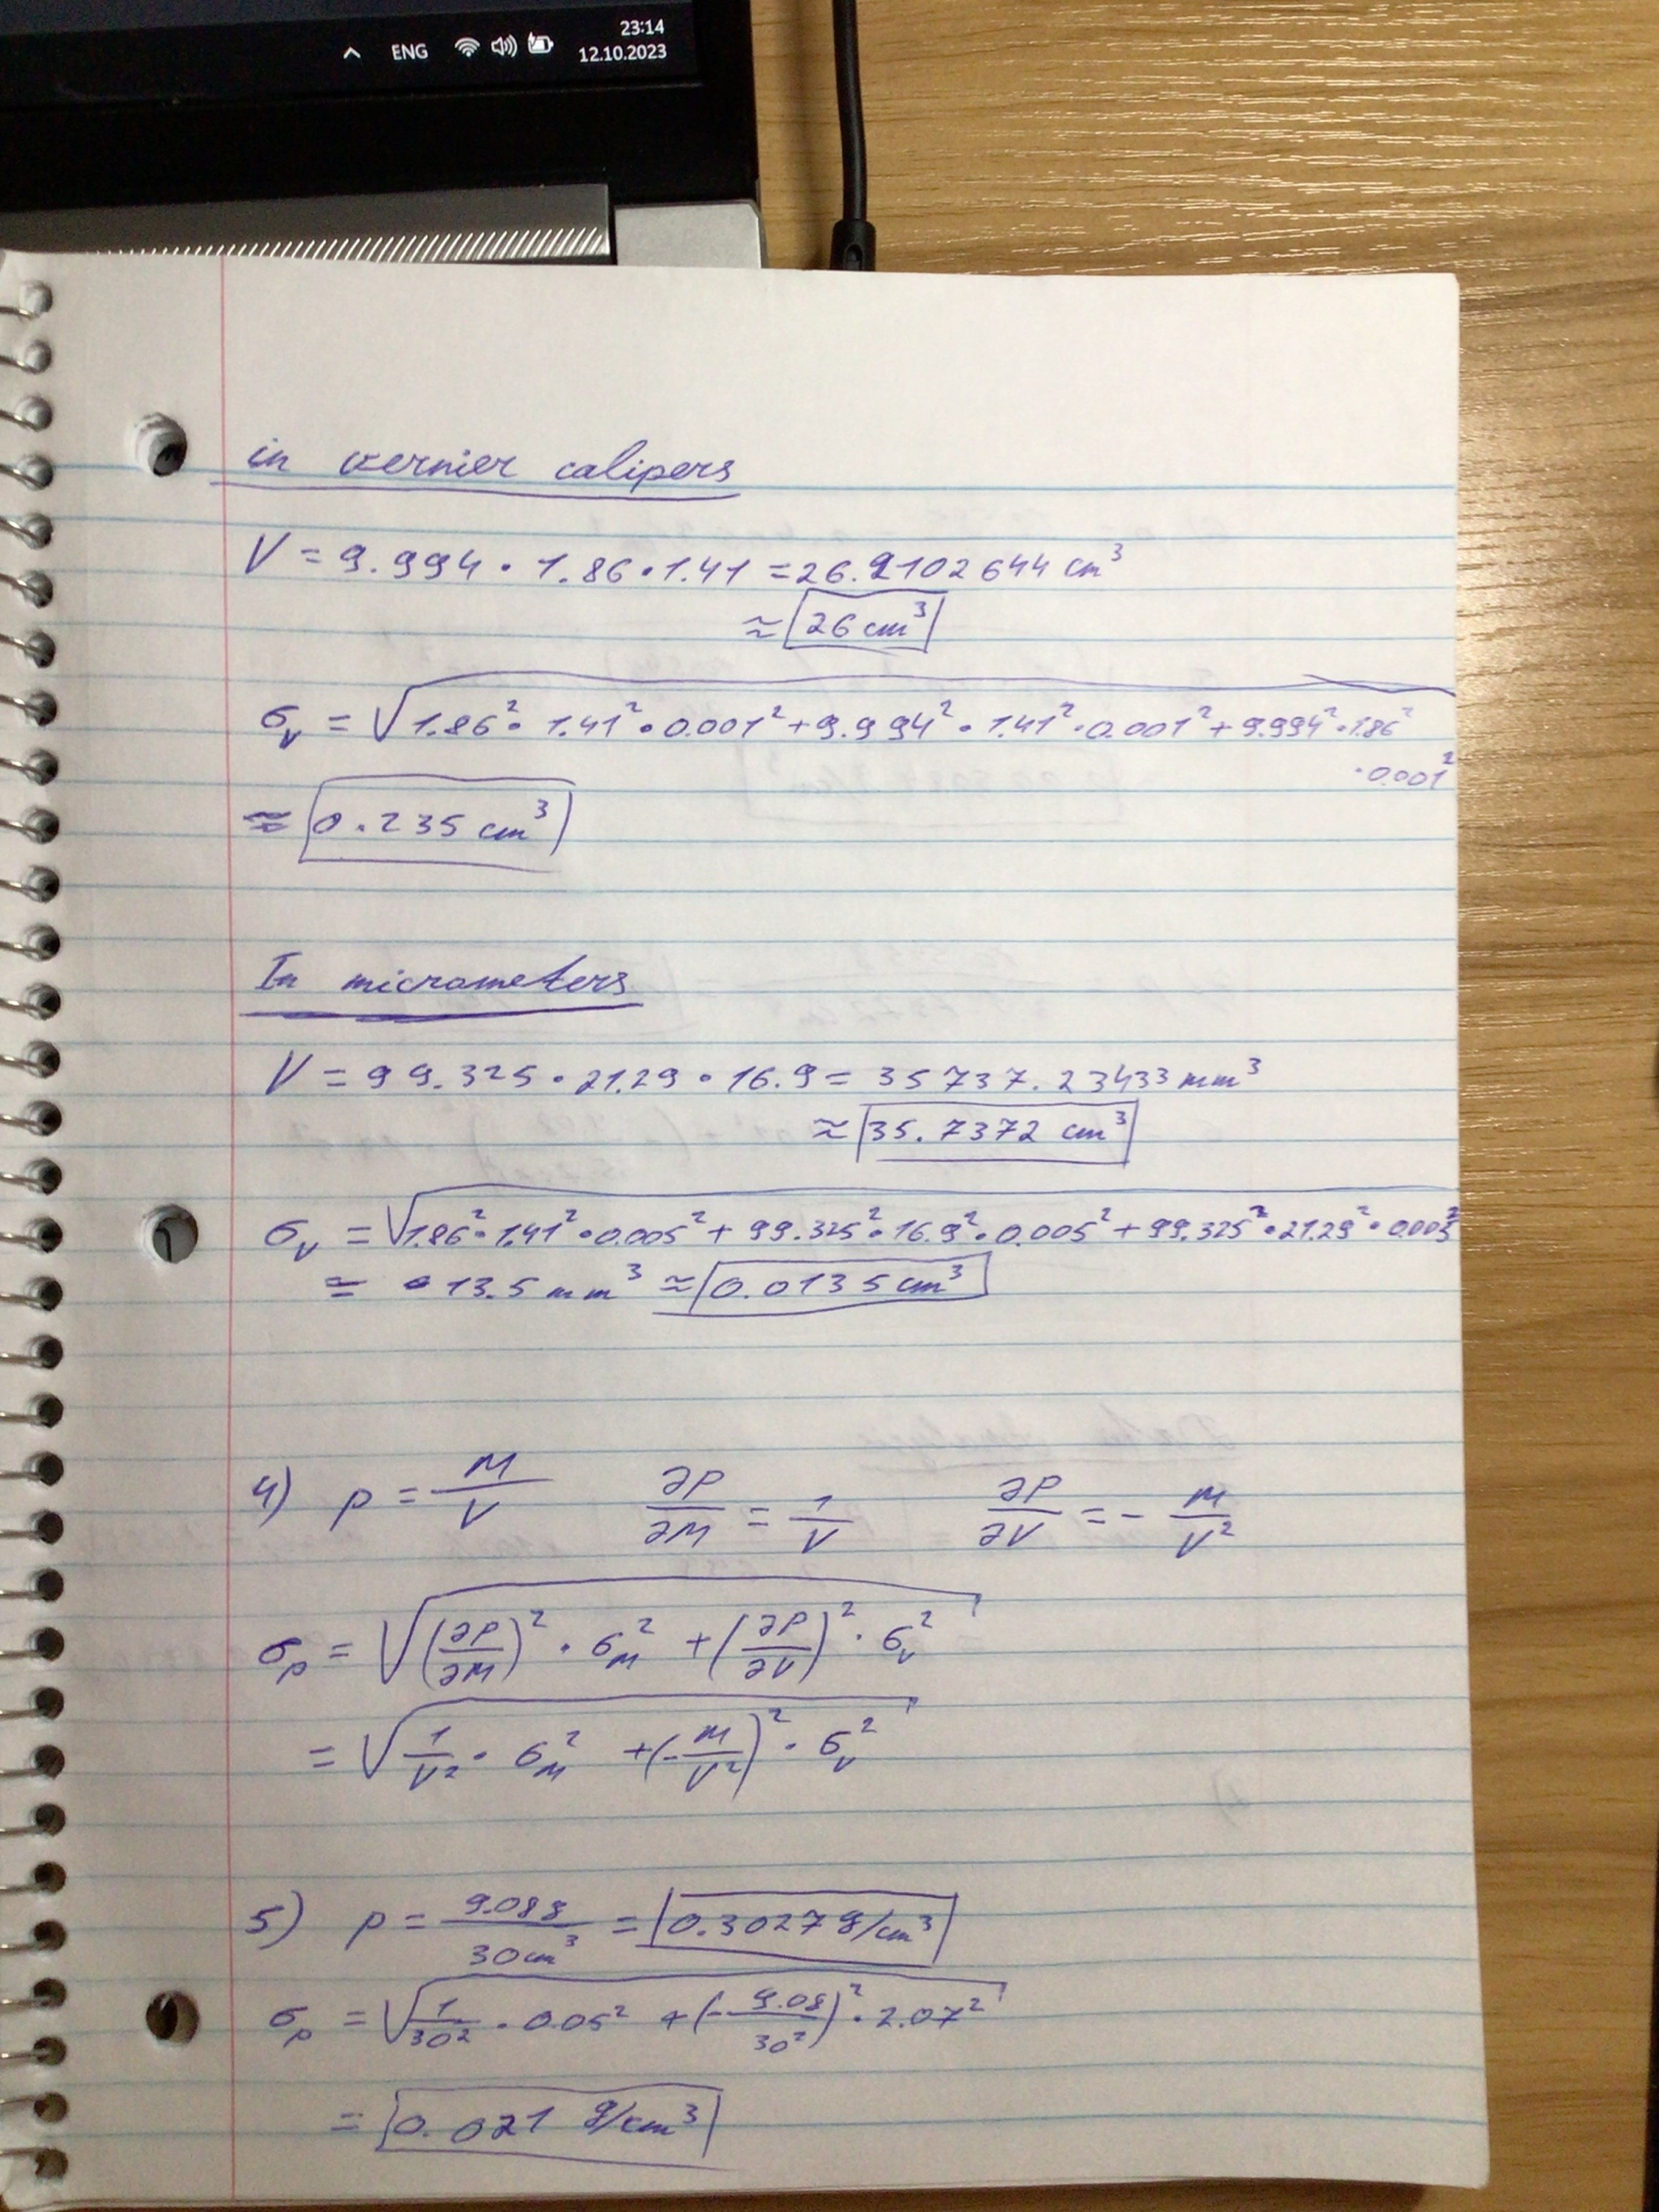 23:14
ENG 12.10.2023
in vernier calipers
V = 9.994 · 1.86 · 1.41 = 26.2102644 cm³
≈ 26 cm³
σ_V = √(1.86² · 1.41² · 0.001² + 9.994² · 1.41² · 0.001² + 9.994² · 1.86²
· 0.001²)
≈ 0.235 cm³
In micrometers
V = 99.325 · 21.29 · 16.9 = 35737.23433 mm³
≈ 35.7372 cm³
σ_V = √(1.86² · 1.41² · 0.005² + 99.325² · 16.9² · 0.005² + 99.325² · 21.29² · 0.005²)
= 13.5 mm³ ≈ 0.0135 cm³
4) ρ = M/V ∂ρ/∂M = 1/V ∂ρ/∂V = - M/V²
σ_ρ = √((∂ρ/∂M)² · σ_M² + (∂ρ/∂V)² · σ_V²)
= √(1/V² · σ_M² + (-M/V²)² · σ_V²)
5) ρ = 9.08g/30cm³ = 0.3027 g/cm³
σ_ρ = √(1/30² · 0.05² + (-9.08/30²)² · 2.07²)
= 0.021 g/cm³